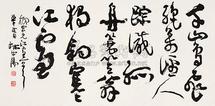 千山鳥飛
絕萬徑人
蹤滅孤
舟蓑笠翁
獨釣寒
江雪